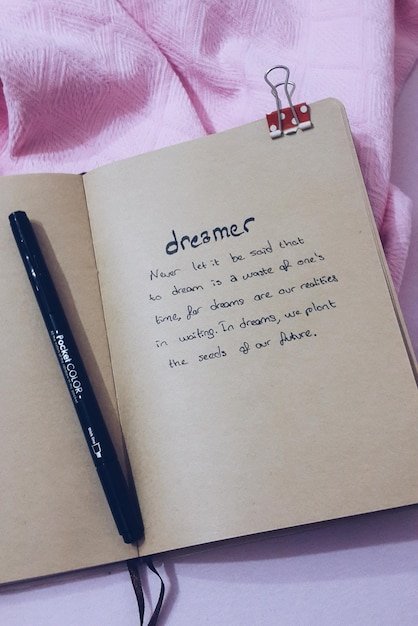 dreamer
Never let it be said that
to dream is a waste of one's
time, for dreams are our realities
in waiting. In dreams, we plant
the seeds of our future.
- Pocket COLOR -